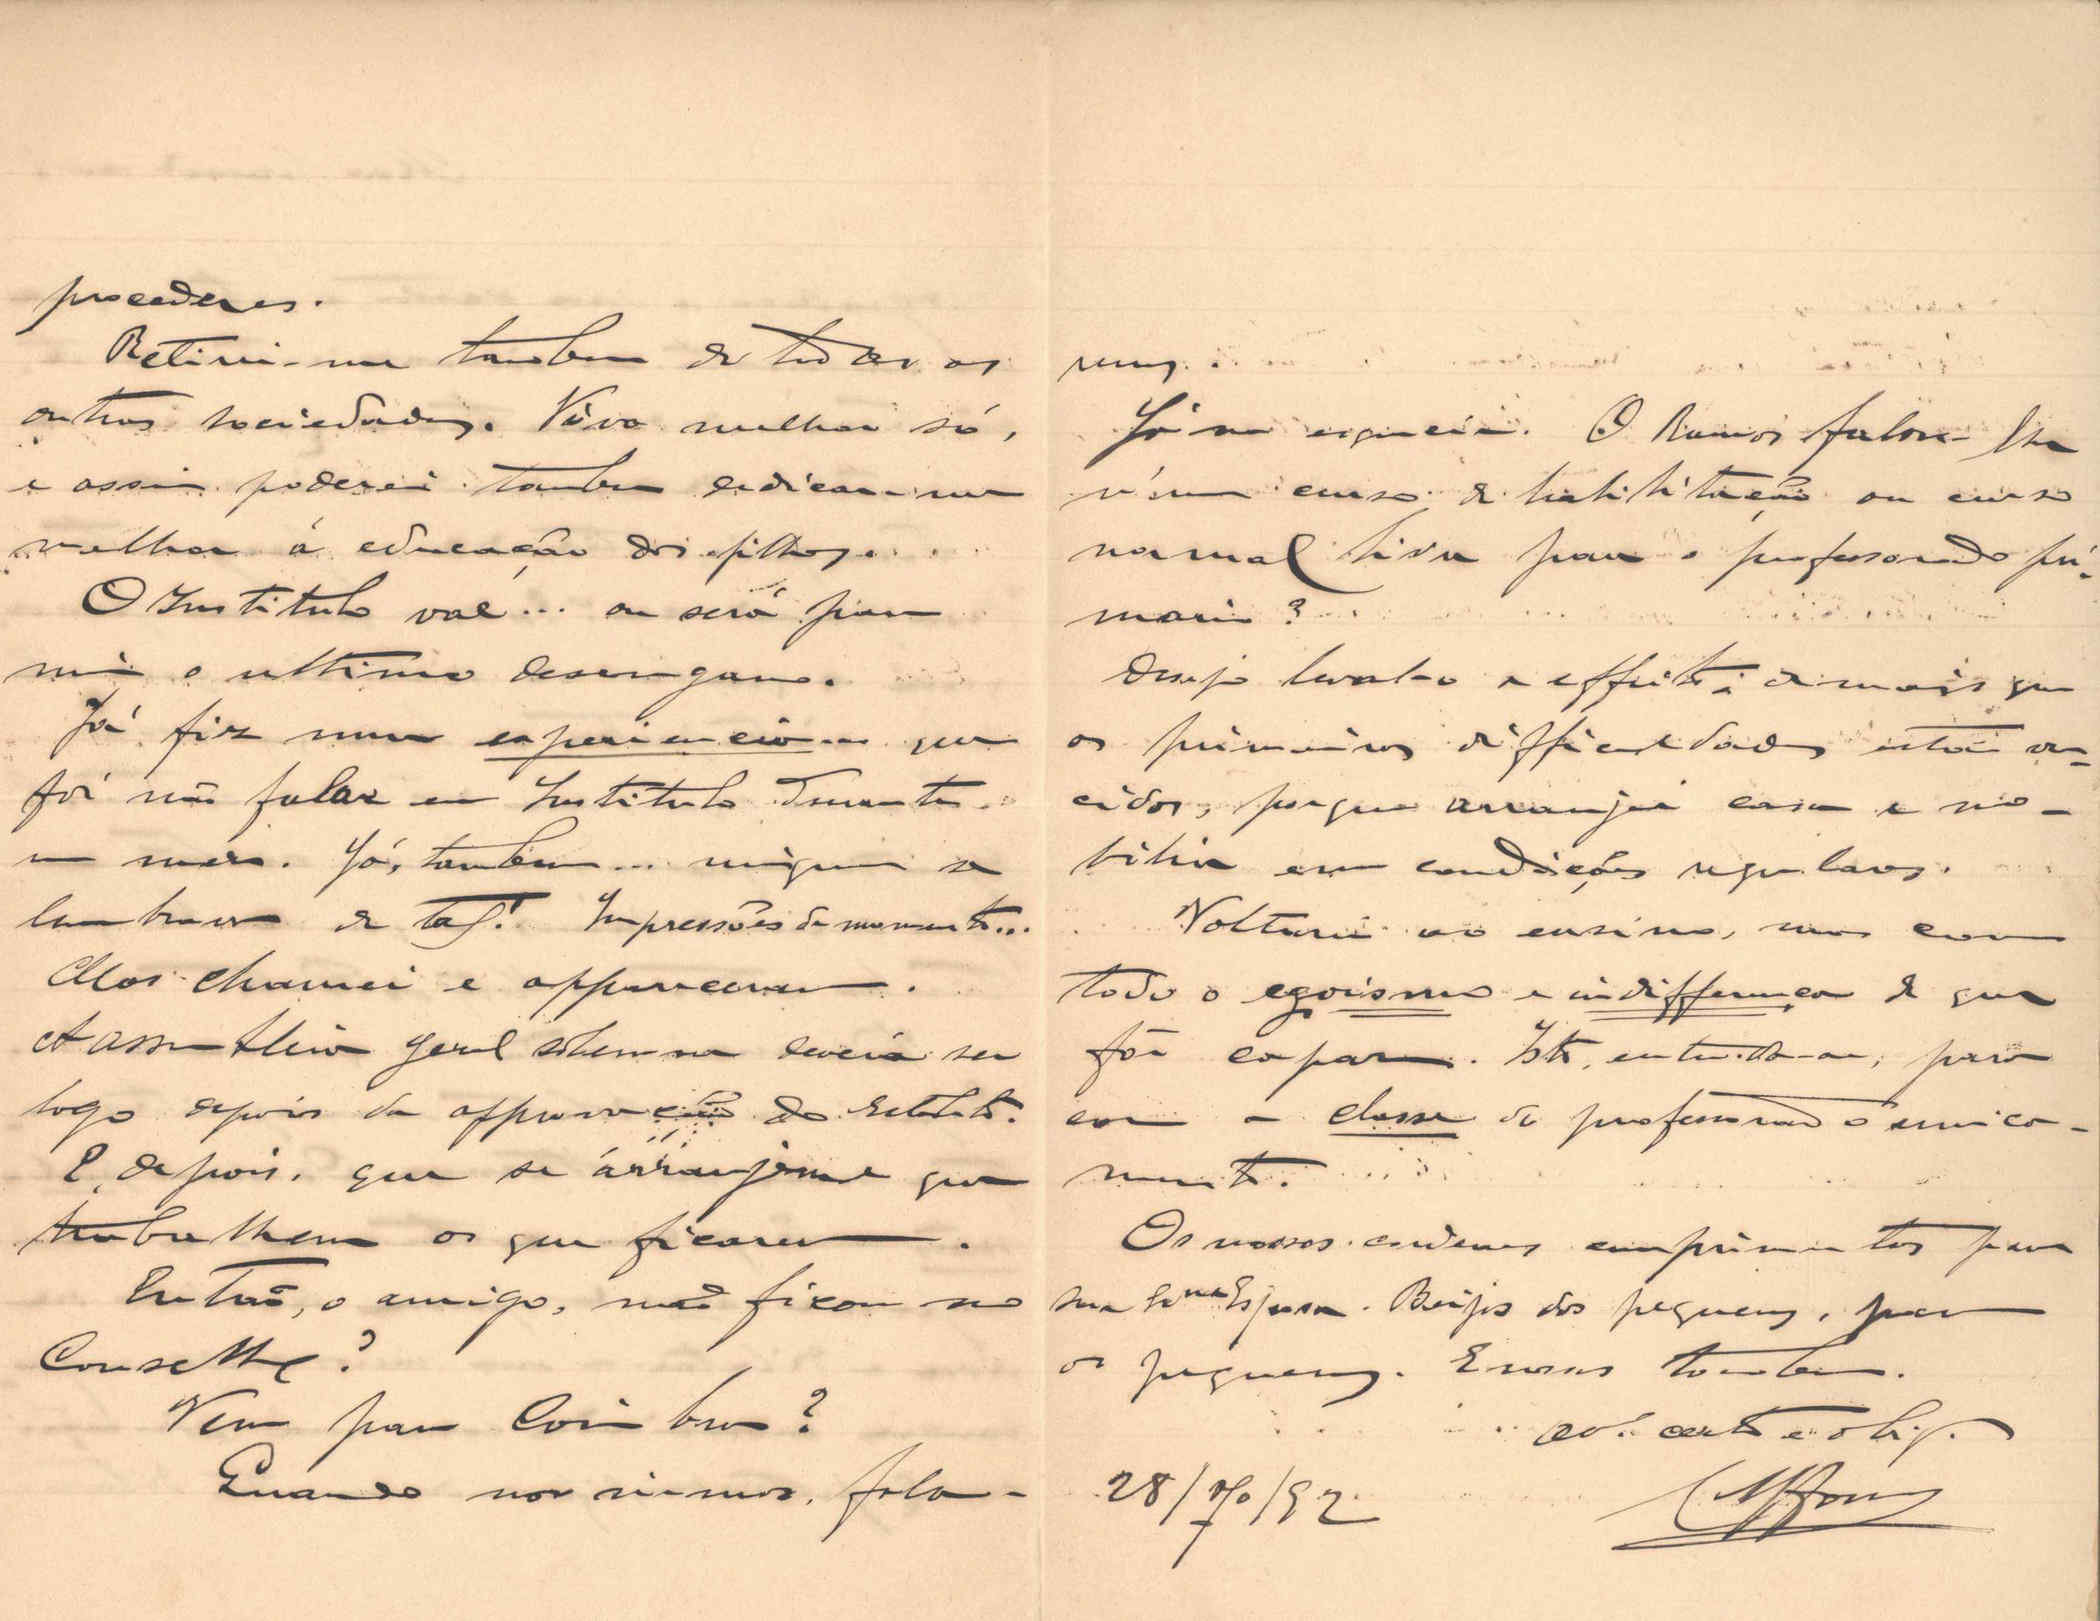 procederes.
Retirei-me tambem de todas as
outras sociedades. Vivo melhor só,
e assim poderei tambem dedicar-me
melhor á educação dos filhos.
O Instituto vae... ou será para
mim o ultimo desengano.
Já fiz uma experiencia que
foi não falar em Instituto durante
um mez. Já, tambem... ninguem se
lembrava de tal! Impressões de momento...
Mas chamei e appareceram.
A assembleia geral solemne deveria ser
logo depois da approvação do Estatuto.
E, depois, que se arranjem e que
trabalhem os que ficarem.
Então, o amigo, não ficou no
Conselho?
Vem para Coimbra?
Quando nos virmos, fala-
remos.
Já me esquecia. O Ramos falou-lhe
n'um curso de habilitação ou curso
normal livre para o professorado pri-
mario?
Desejo leval-o a effeito, de mais que
as primeiras difficuldades estão ven-
cidas, porque arranjei casa e mo-
bilia em condições regulares.
Voltarei ao ensino, mas com
todo o egoismo e indifferença de que
fôr capaz. Isto, entenda-se, para
com a classe do professorado unica-
mente.
Os nossos cordeaes cumprimentos para
sua Ex.ma Esposa. Beijos dos pequenos, para
os pequenos. E nossos tambem.
am.º certo e obrig.
28/10/92